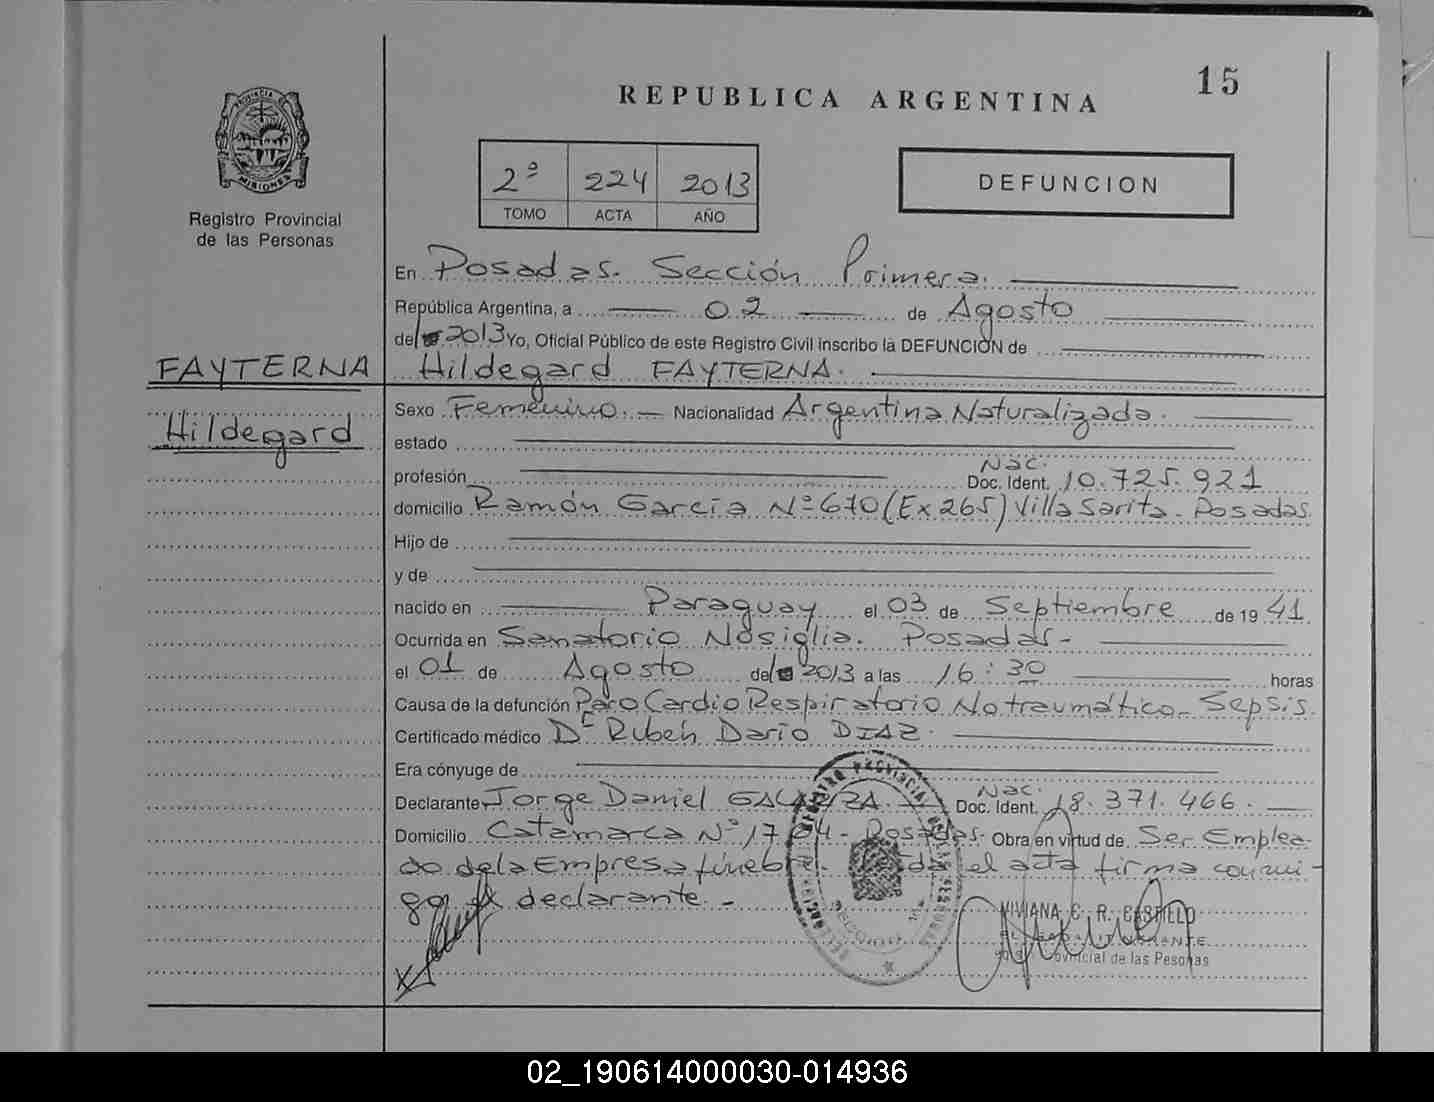 15
REPUBLICA ARGENTINA
PROVINCIA DE
MISIONES
Registro Provincial
de las Personas
2ª 224 2013
TOMO ACTA AÑO
DEFUNCION
En Posadas. Sección Primera.
República Argentina, a 02 de Agosto
del 2013 Yo, Oficial Público de este Registro Civil inscribo la DEFUNCION de
FAYTERNA
Hildegard FAYTERNA.
Hildegard
Sexo Femenino. Nacionalidad Argentina Naturalizada.
estado
profesión Nac. Doc. Ident. 10.725.921
domicilio Ramón García Nº 670 (Ex 265) Villa Sarita. Posadas.
Hijo de
y de
nacido en Paraguay el 03 de Septiembre de 19 41
Ocurrida en Sanatorio Nosiglia. Posadas-
el 01 de Agosto del 2013 a las 16:30 horas
Causa de la defunción Paro Cardio Respiratorio No traumático. Sepsis.
Certificado médico Dr Rubén Darío DIAZ.
Era cónyuge de
Declarante Jorge Daniel Nac. Doc. Ident. 18.371.466.
Domicilio Catamarca Nº - Posadas- Obra en virtud de Ser Emplea-
do de la Empresa el acta firma conmi-
go el declarante.-
VIVIANA C. R. CASTELLO
Provincial de las Pesonas
02_190614000030-014936